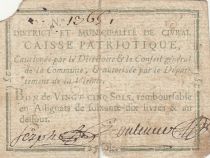 N° 1565.
DISTRICT ET MUNICIPALITÉ DE CIVRAI.
CAISSE PATRIOTIQUE,
Cautionnée par le Directoire & le Conseil général
de la Commune, & autorisée par le Dépar-
tement de la Vienne.
BON de VINGT CINQ SOLS, remboursable
en Assignats de soixante-dix livres & au
dessous.